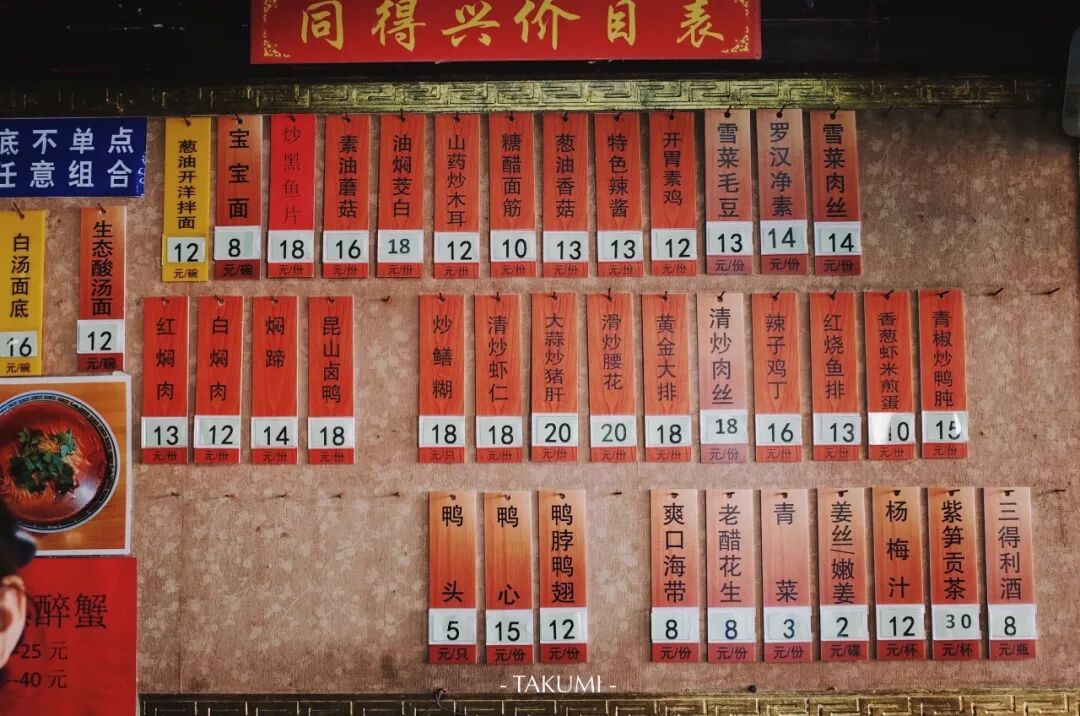 同得兴价目表
底不单点
任意组合
白汤面底 16 元/碗
生态酸汤面 12 元/碗
葱油开洋拌面 12 元/碗
宝宝面 8 元/碗
炒黑鱼片 18 元/份
素油蘑菇 16 元/份
油焖茭白 18 元/份
山药炒木耳 12 元/份
糖醋面筋 10 元/份
葱油香菇 13 元/份
特色辣酱 13 元/份
开胃素鸡 12 元/份
雪菜毛豆 13 元/份
罗汉净素 14 元/份
雪菜肉丝 14 元/份
红焖肉 13 元/份
白焖肉 12 元/份
焖蹄 14 元/份
昆山卤鸭 18 元/份
炒鳝糊 18 元/只
清炒虾仁 18 元/份
大蒜炒猪肝 20 元/份
滑炒腰花 20 元/份
黄金大排 18 元/份
清炒肉丝 18 元/份
辣子鸡丁 16 元/份
红烧鱼排 13 元/份
香葱虾米煎蛋 10 元/份
青椒炒鸭肫 15 元/份
鸭头 5 元/只
鸭心 15 元/份
鸭脖鸭翅 12 元/份
爽口海带 8 元/份
老醋花生 8 元/份
青菜 3 元/份
姜丝/嫩姜 2 元/碟
杨梅汁 12 元/杯
紫笋贡茶 30 元/杯
三得利酒 8 元/瓶
醉蟹
-25 元
--40 元
- TAKUMI -